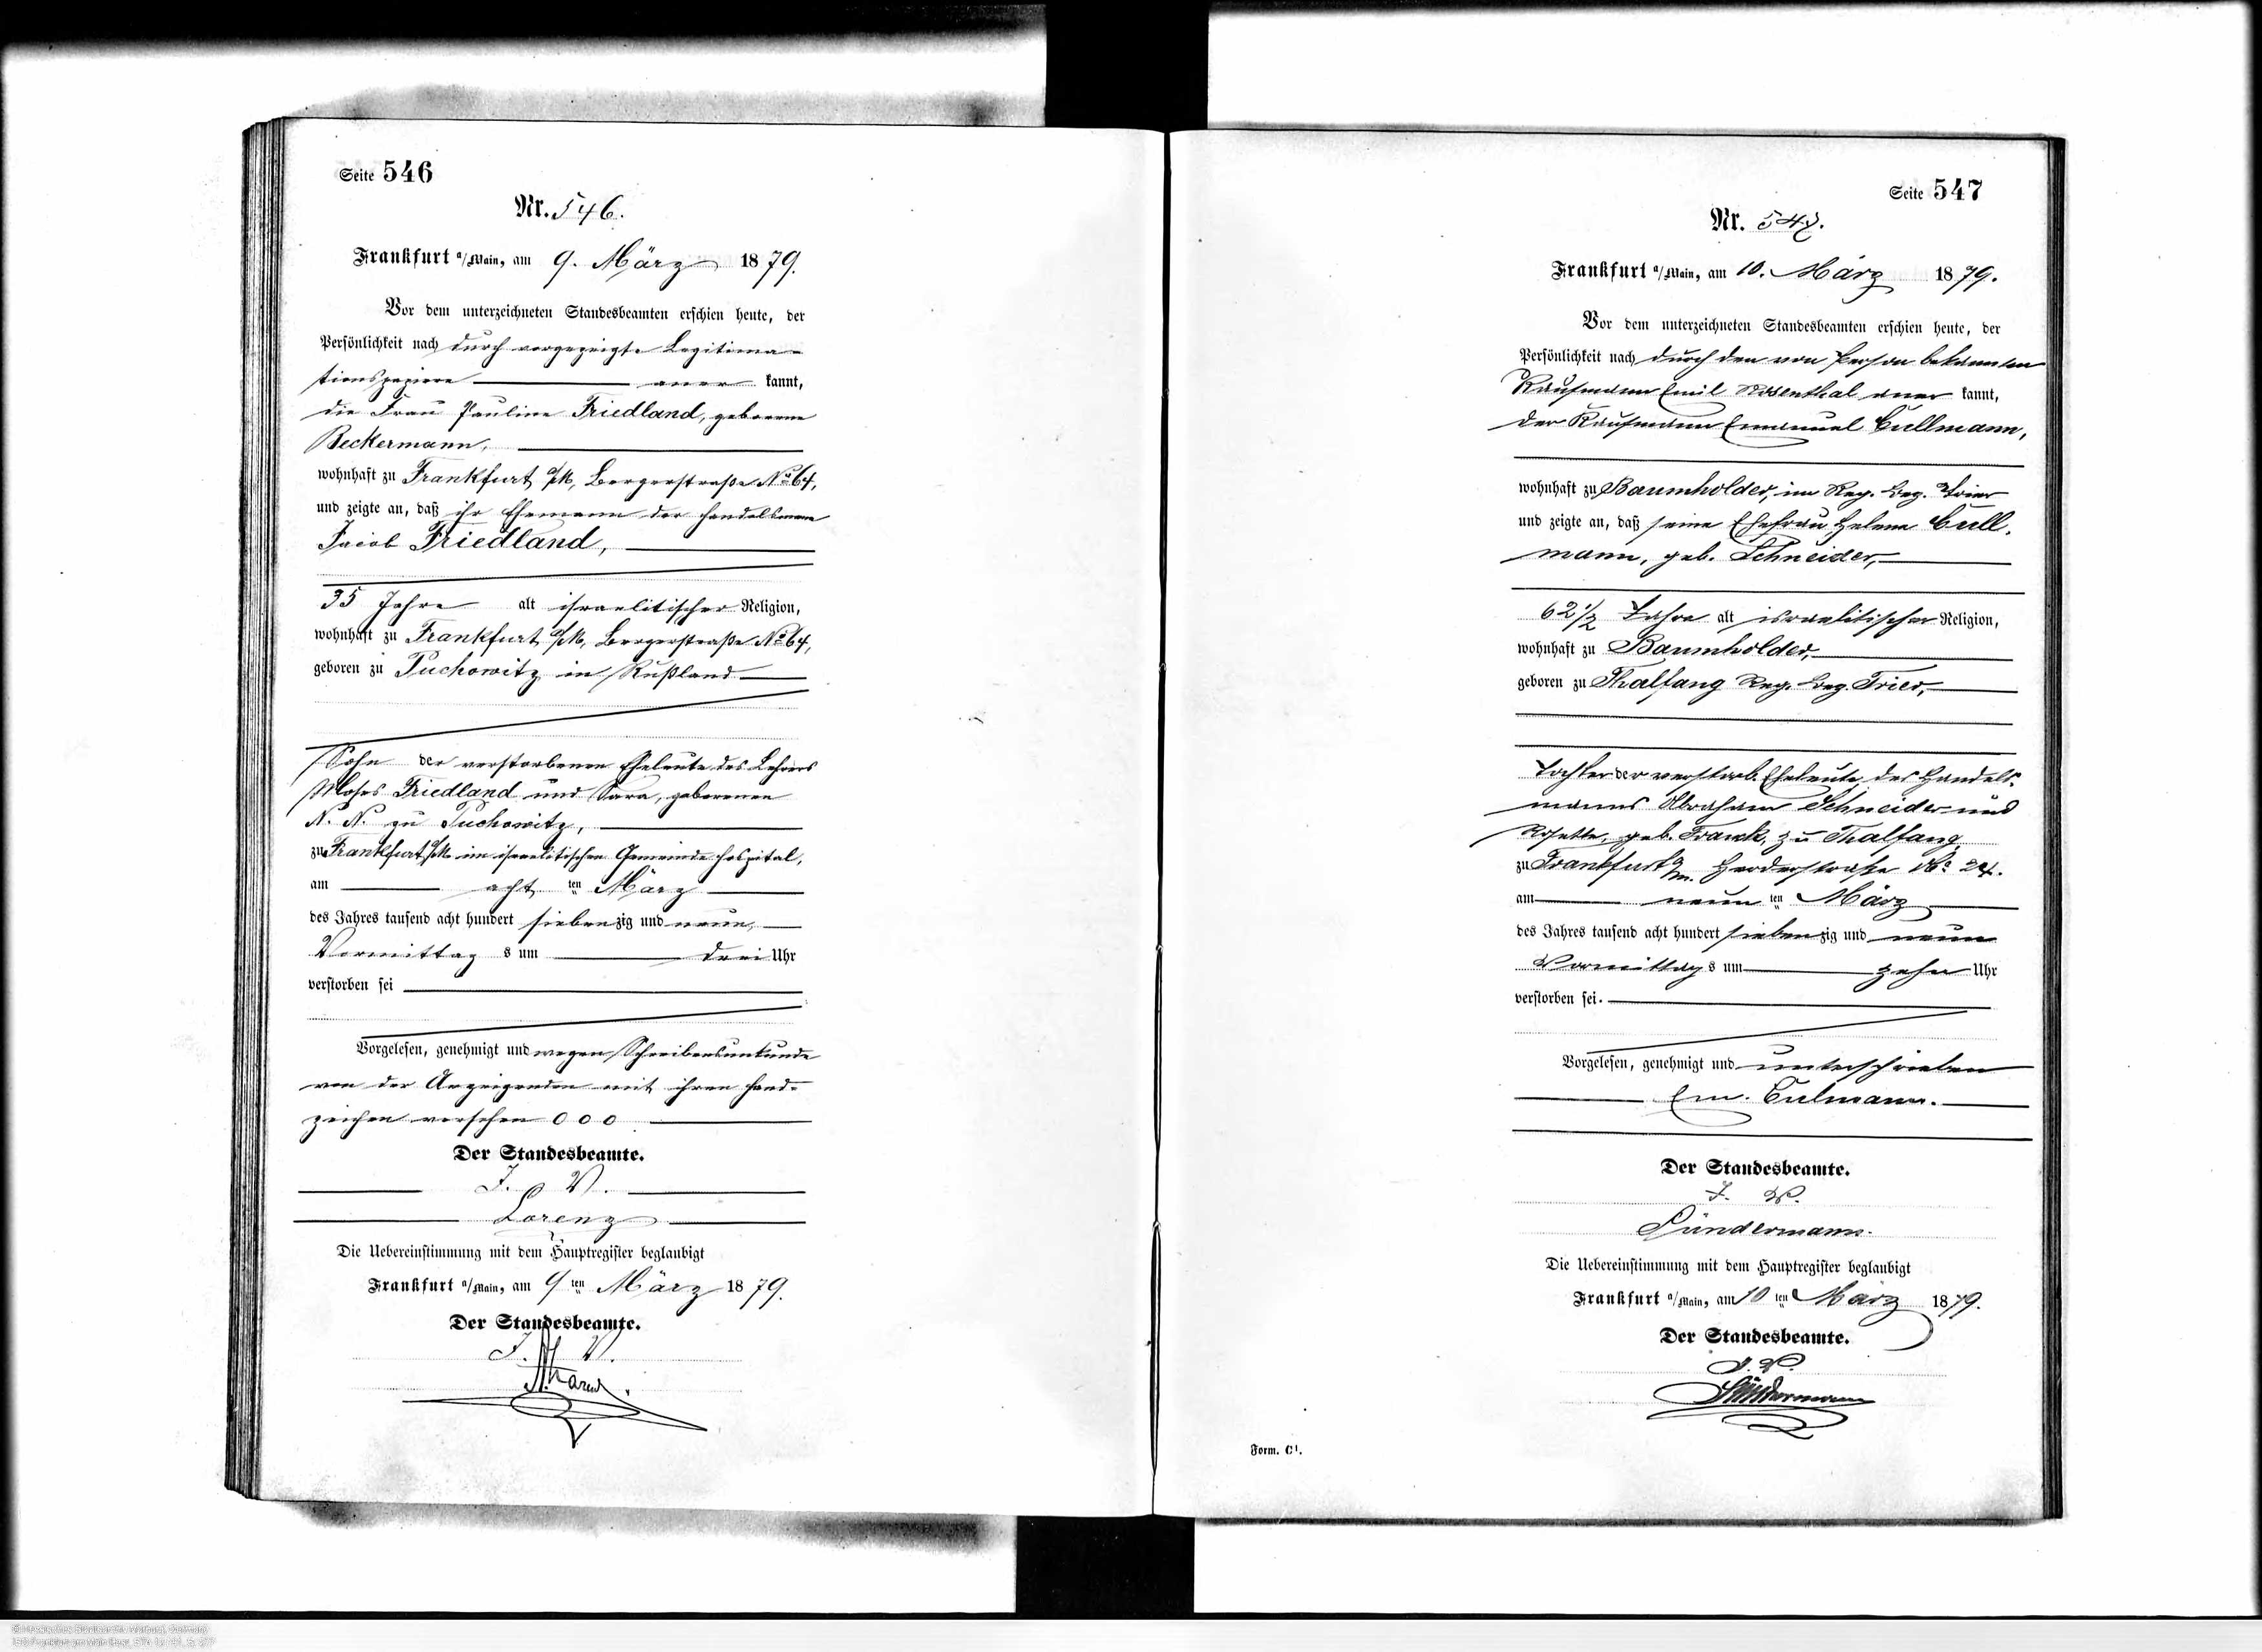 Seite 546
Nr. 546.
Frankfurt a/Main, am 9. März 1879.
Vor dem unterzeichneten Standesbeamten erschien heute, der
Persönlichkeit nach durch vorgezeigte Legitima-
tionspapiere aner kannt,
die Frau Pauline Friedland, geborene
Beckermann,
wohnhaft zu Frankfurt a/M, Bergerstraße No 64,
und zeigte an, daß ihr Ehemann der Handelsmann
Jacob Friedland,
35 Jahre alt israelitischer Religion,
wohnhaft zu Frankfurt a/M, Bergerstraße No 64,
geboren zu Puchowitz in Rußland
Sohn der verstorbenen Eheleute des Lehrers
Moses Friedland und Sara, geborenen
N. N. zu Puchowitz,
zu Frankfurt a/M im israelitischen Gemeinde Hospital,
am acht ten März
des Jahres tausend acht hundert siebenzig und neun,
Vormittag s um drei Uhr
verstorben sei
Vorgelesen, genehmigt und wegen Schreibensunkunde
von der Anzeigenden mit ihren Hand-
zeichen versehen 000
Der Standesbeamte.
J. V.
Lorenz
Die Uebereinstimmung mit dem Hauptregister beglaubigt
Frankfurt a/Main, am 9 ten März 1879.
Der Standesbeamte.
J. V.
Seite 547
Nr. 547.
Frankfurt a/Main, am 10. März 1879.
Vor dem unterzeichneten Standesbeamten erschien heute, der
Persönlichkeit nach durch den von Person bekannten
Kaufmann Emil Rosenthal aner kannt,
der Kaufmann Emanuel Cullmann,
wohnhaft zu Baumholder, im Reg. Bez. Trier
und zeigte an, daß seine Ehefrau Helene Cull-
mann, geb. Schneider,
62 1/2 Jahre alt israelitischer Religion,
wohnhaft zu Baumholder,
geboren zu Thalfang Reg. Bez. Trier,
Tochter der verstorb. Eheleute des Handels-
manns Abraham Schneider und
Rosette, geb. Frank, zu Thalfang
zu Frankfurt a/m. Herderstraße No 24.
am neun ten März
des Jahres tausend acht hundert siebenzig und neun
Vormittag s um zehn Uhr
verstorben sei.
Vorgelesen, genehmigt und unterschrieben
Em. Culmann.
Der Standesbeamte.
J. V.
Sündermann.
Die Uebereinstimmung mit dem Hauptregister beglaubigt
Frankfurt a/Main, am 10 ten März 1879.
Der Standesbeamte.
J. V.
Sündermann
Form. C1.